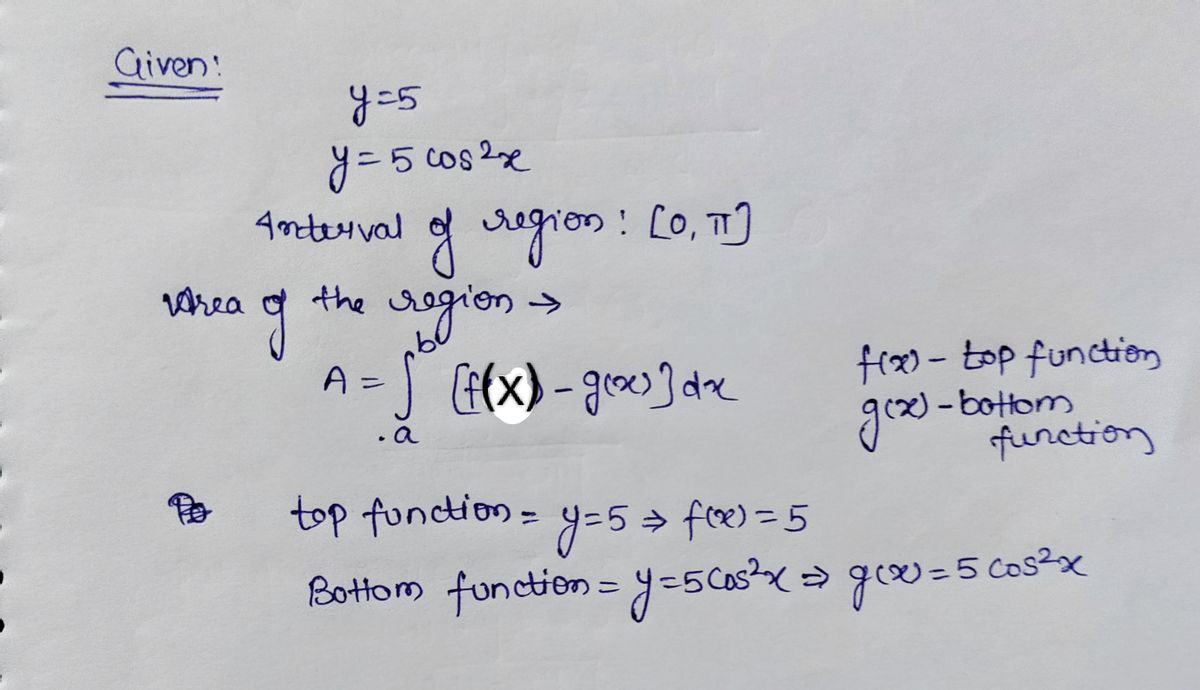 Given:
y=5
y=5 cos²x
Interval of region: [0, π]
Area of the region →
A = ∫ₐᵇ [f(x) - g(x)] dx
f(x) - top function
g(x) - bottom
function
top function = y=5 ⇒ f(x) = 5
Bottom function = y=5cos²x ⇒ g(x) = 5 cos²x